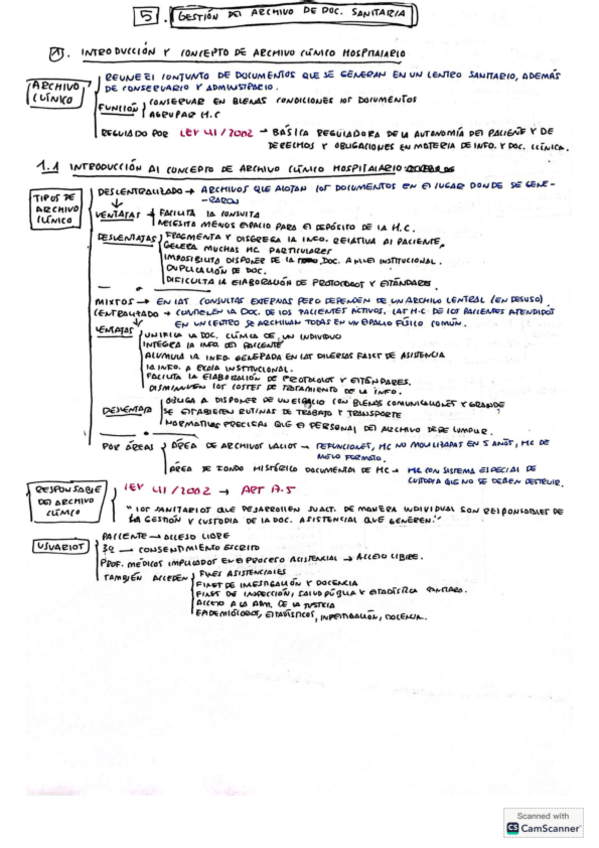 5. GESTIÓN DEL ARCHIVO DE DOC. SANITARIA
1. INTRODUCCIÓN Y CONCEPTO DE ARCHIVO CLÍNICO HOSPITALARIO
ARCHIVO CLÍNICO
REUNE EL CONJUNTO DE DOCUMENTOS QUE SE GENERAN EN UN CENTRO SANITARIO, ADEMÁS
DE CONSERVARLO Y ADMINISTRARLO.
FUNCIÓN
CONSERVAR EN BUENAS CONDICIONES LOS DOCUMENTOS
AGRUPAR H.C
REGULADO POR LEY 41/2002 → BÁSICA REGULADORA DE LA AUTONOMÍA DEL PACIENTE Y DE
DERECHOS Y OBLIGACIONES EN MATERIA DE INFO. Y DOC. CLÍNICA.
1.1 INTRODUCCIÓN AL CONCEPTO DE ARCHIVO CLÍNICO HOSPITALARIO
TIPOS DE ARCHIVO CLÍNICO
DESCENTRALIZADO → ARCHIVOS QUE ALOJAN LOS DOCUMENTOS EN EL LUGAR DONDE SE GENE-
-RARON
VENTAJAS
FACILITA LA CONSULTA
NECESITA MENOS ESPACIO PARA EL DEPÓSITO DE LA H.C.
DESVENTAJAS
FRAGMENTA Y DISGREGA LA INFO. RELATIVA AL PACIENTE,
GENERA MUCHAS HC PARTICULARES
IMPOSIBILITA DISPONER DE LA DOC. A NIVEL INSTITUCIONAL.
DUPLICACIÓN DE DOC.
DIFICULTA LA ELABORACIÓN DE PROTOCOLOS Y ESTÁNDARES.
MIXTOS → EN LAS CONSULTAS EXTERNAS PERO DEPENDEN DE UN ARCHIVO CENTRAL (EN DESUSO).
CENTRALIZADO → CONTIENEN LA DOC. DE LOS PACIENTES ACTIVOS. LAS H.C DE LOS PACIENTES ATENDIDOS
EN UN CENTRO SE ARCHIVAN TODAS EN UN ESPACIO FÍSICO COMÚN.
VENTAJAS
UNIFICA LA DOC. CLÍNICA DE UN INDIVIDUO
INTEGRA LA INFO. DEL PACIENTE
ACUMULA LA INFO GENERADA EN LAS DIVERSAS FASES DE ASISTENCIA
LA INFO. A ESCALA INSTITUCIONAL.
FACILITA LA ELABORACIÓN DE PROTOCOLOS Y ESTÁNDARES.
DISMINUYEN LOS COSTES DE TRATAMIENTO DE LA INFO.
DESVENTAJA
OBLIGA A DISPONER DE UN ESPACIO CON BUENAS COMUNICACIONES Y GRANDE,
SE ESTABLECEN RUTINAS DE TRABAJO Y TRANSPORTE
NORMATIVAS PRECISAS QUE EL PERSONAL DEL ARCHIVO DEBE CUMPLIR.
POR ÁREAS
ÁREA DE ARCHIVOS → DEFUNCIONES, HC NO MOVILIZADAS EN 5 AÑOS, HC DE
FORMATO.
ÁREA DE FONDO HISTÓRICO DOCUMENTAL DE HC → HC CON SISTEMA ESPECIAL DE
CUSTODIA QUE NO SE DEBEN DESTRUIR.
RESPONSABLE DEL ARCHIVO CLÍNICO
LEY 41/2002 → ART 17.5
"LOS SANITARIOS QUE DESARROLLEN SU ACT. DE MANERA INDIVIDUAL SON RESPONSABLES DE
LA GESTIÓN Y CUSTODIA DE LA DOC. ASISTENCIAL QUE GENEREN."
USUARIOS
PACIENTE → ACCESO LIBRE
→ CONSENTIMIENTO ESCRITO
PROF. MÉDICOS IMPLICADOS EN EL PROCESO ASISTENCIAL → ACCESO LIBRE.
TAMBIÉN ACCEDEN
FINES ASISTENCIALES
FINES DE INVESTIGACIÓN Y DOCENCIA
FINES DE INSPECCIÓN, SALUD PÚBLICA Y ESTADÍSTICA SANITARIA.
ACCESO A LA ADM. DE LA JUSTICIA
EPIDEMIÓLOGOS, ESTADÍSTICOS, INVESTIGACIÓN, DOCENCIA.
Scanned with
CS CamScanner